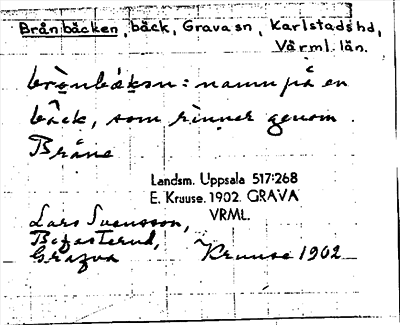 Brånbäcken, bäck, Grava sn, Karlstads hd,
Värml. län.
brònbäksn: namn på en
bäck, som rinner genom
Bråne
Landsm. Uppsala 517:268
E. Kruuse. 1902. GRAVA
VRML.
Lars Svensson,
Kruuse 1902